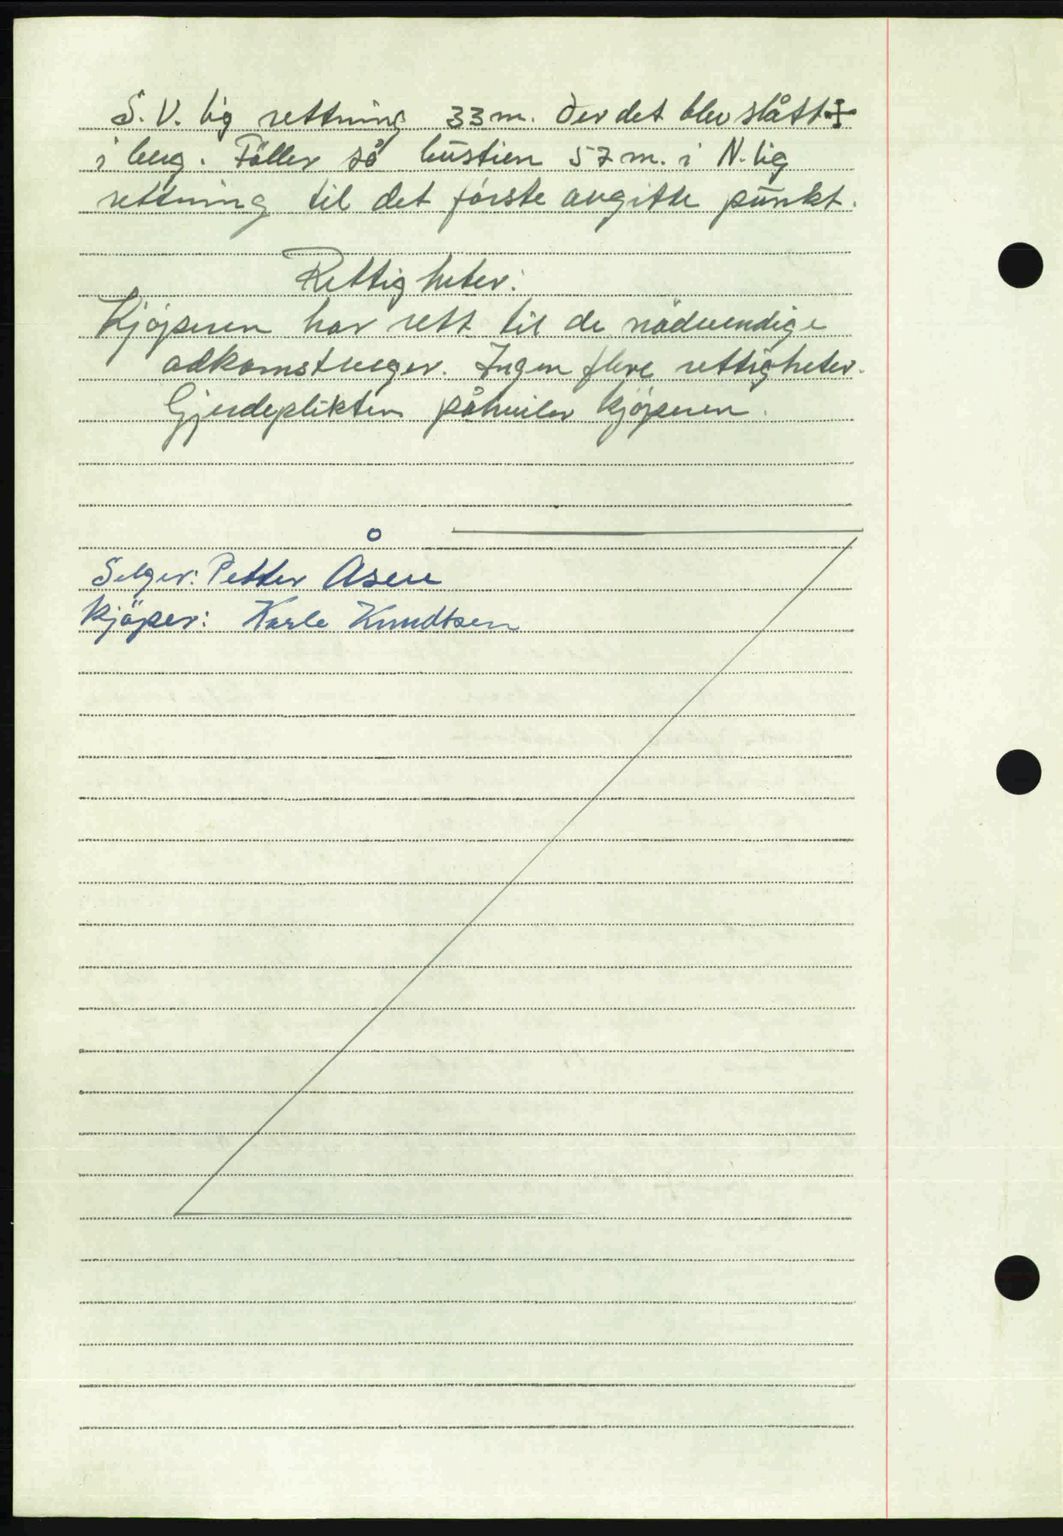 S. V. lig rettning 33 m. der det blev slått ✢
i berg. Föller så hustien 57 m. i N. lig
rettning til det förste avgitte punkt.
Rettigheter:
Kjöperen har rett til de nödvendige
adkomstveger. Ingen flere rettigheter.
Gjerdeplikten påhviler kjöperen.
Selger: Petter Åsen
Kjöper: Karle Knudtsen